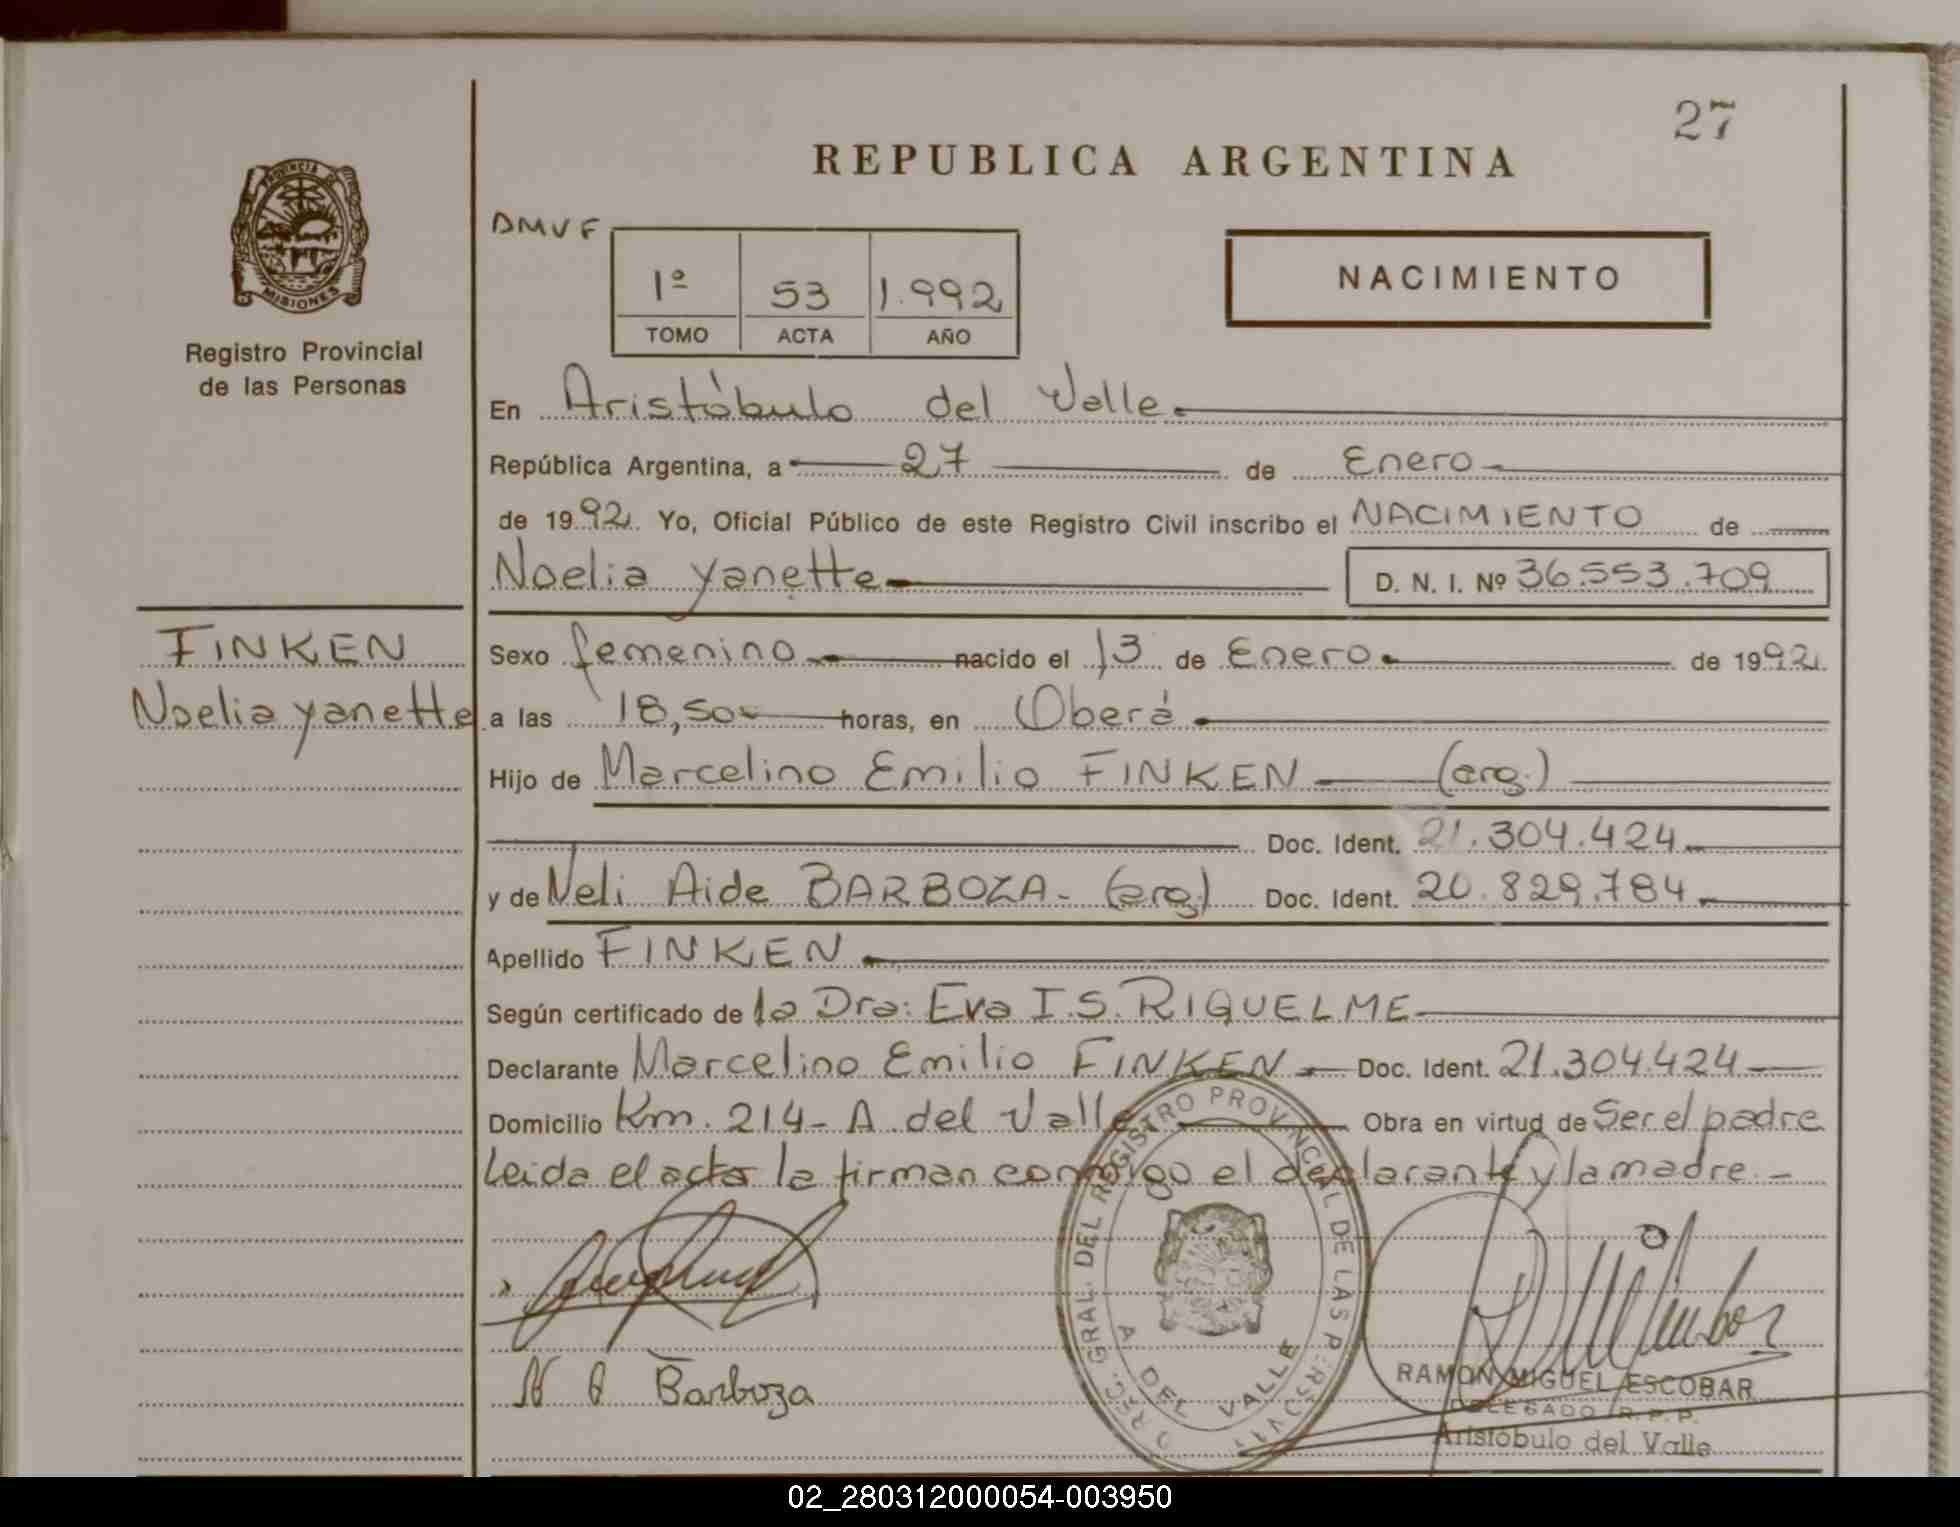 27
REPUBLICA ARGENTINA
DMVF
1º 53 1.992
TOMO ACTA AÑO
NACIMIENTO
PROVINCIA DE
MISIONES
Registro Provincial
de las Personas
En Aristóbulo del Valle
República Argentina, a 27 de Enero
de 1992 Yo, Oficial Público de este Registro Civil inscribo el NACIMIENTO de
Noelia Yanette D. N. I. Nº 36.553.709
FINKEN
Noelia Yanette
Sexo femenino nacido el 13 de Enero de 1992
a las 18,50 horas, en Oberá
Hijo de Marcelino Emilio FINKEN (arg.)
Doc. Ident. 21.304.424
y de Neli Aide BARBOZA- (arg.) Doc. Ident. 20.829.784
Apellido FINKEN
Según certificado de la Dra: Eva I.S. RIQUELME
Declarante Marcelino Emilio FINKEN Doc. Ident. 21.304.424
Domicilio Km. 214- A. del Valle Obra en virtud de Ser el padre
Leida el acta la firman conmigo el declarante y la madre.-
N A Barboza
DREC. GRAL. DEL REGISTRO PROVINCIAL DE LAS PERSONAS
A DEL VALLE
RAMON MIGUEL ESCOBAR
DELEGADO R. P. P.
Aristóbulo del Valle
02_280312000054-003950